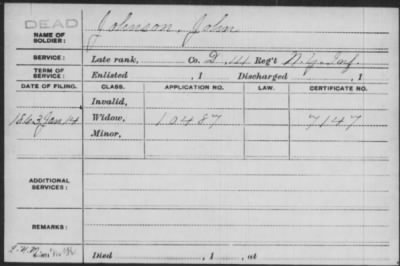 DEAD
NAME OF SOLDIER: Johnson, John
SERVICE: Late rank, Co. D, 14 Reg't N.Y. Inf.
TERM OF SERVICE: Enlisted , 1 Discharged , 1
DATE OF FILING. CLASS. APPLICATION NO. LAW. CERTIFICATE NO.
Invalid,
1863 Jan 14 Widow, 10487 7147
Minor,
ADDITIONAL SERVICES:
REMARKS:
Died , 1 , at